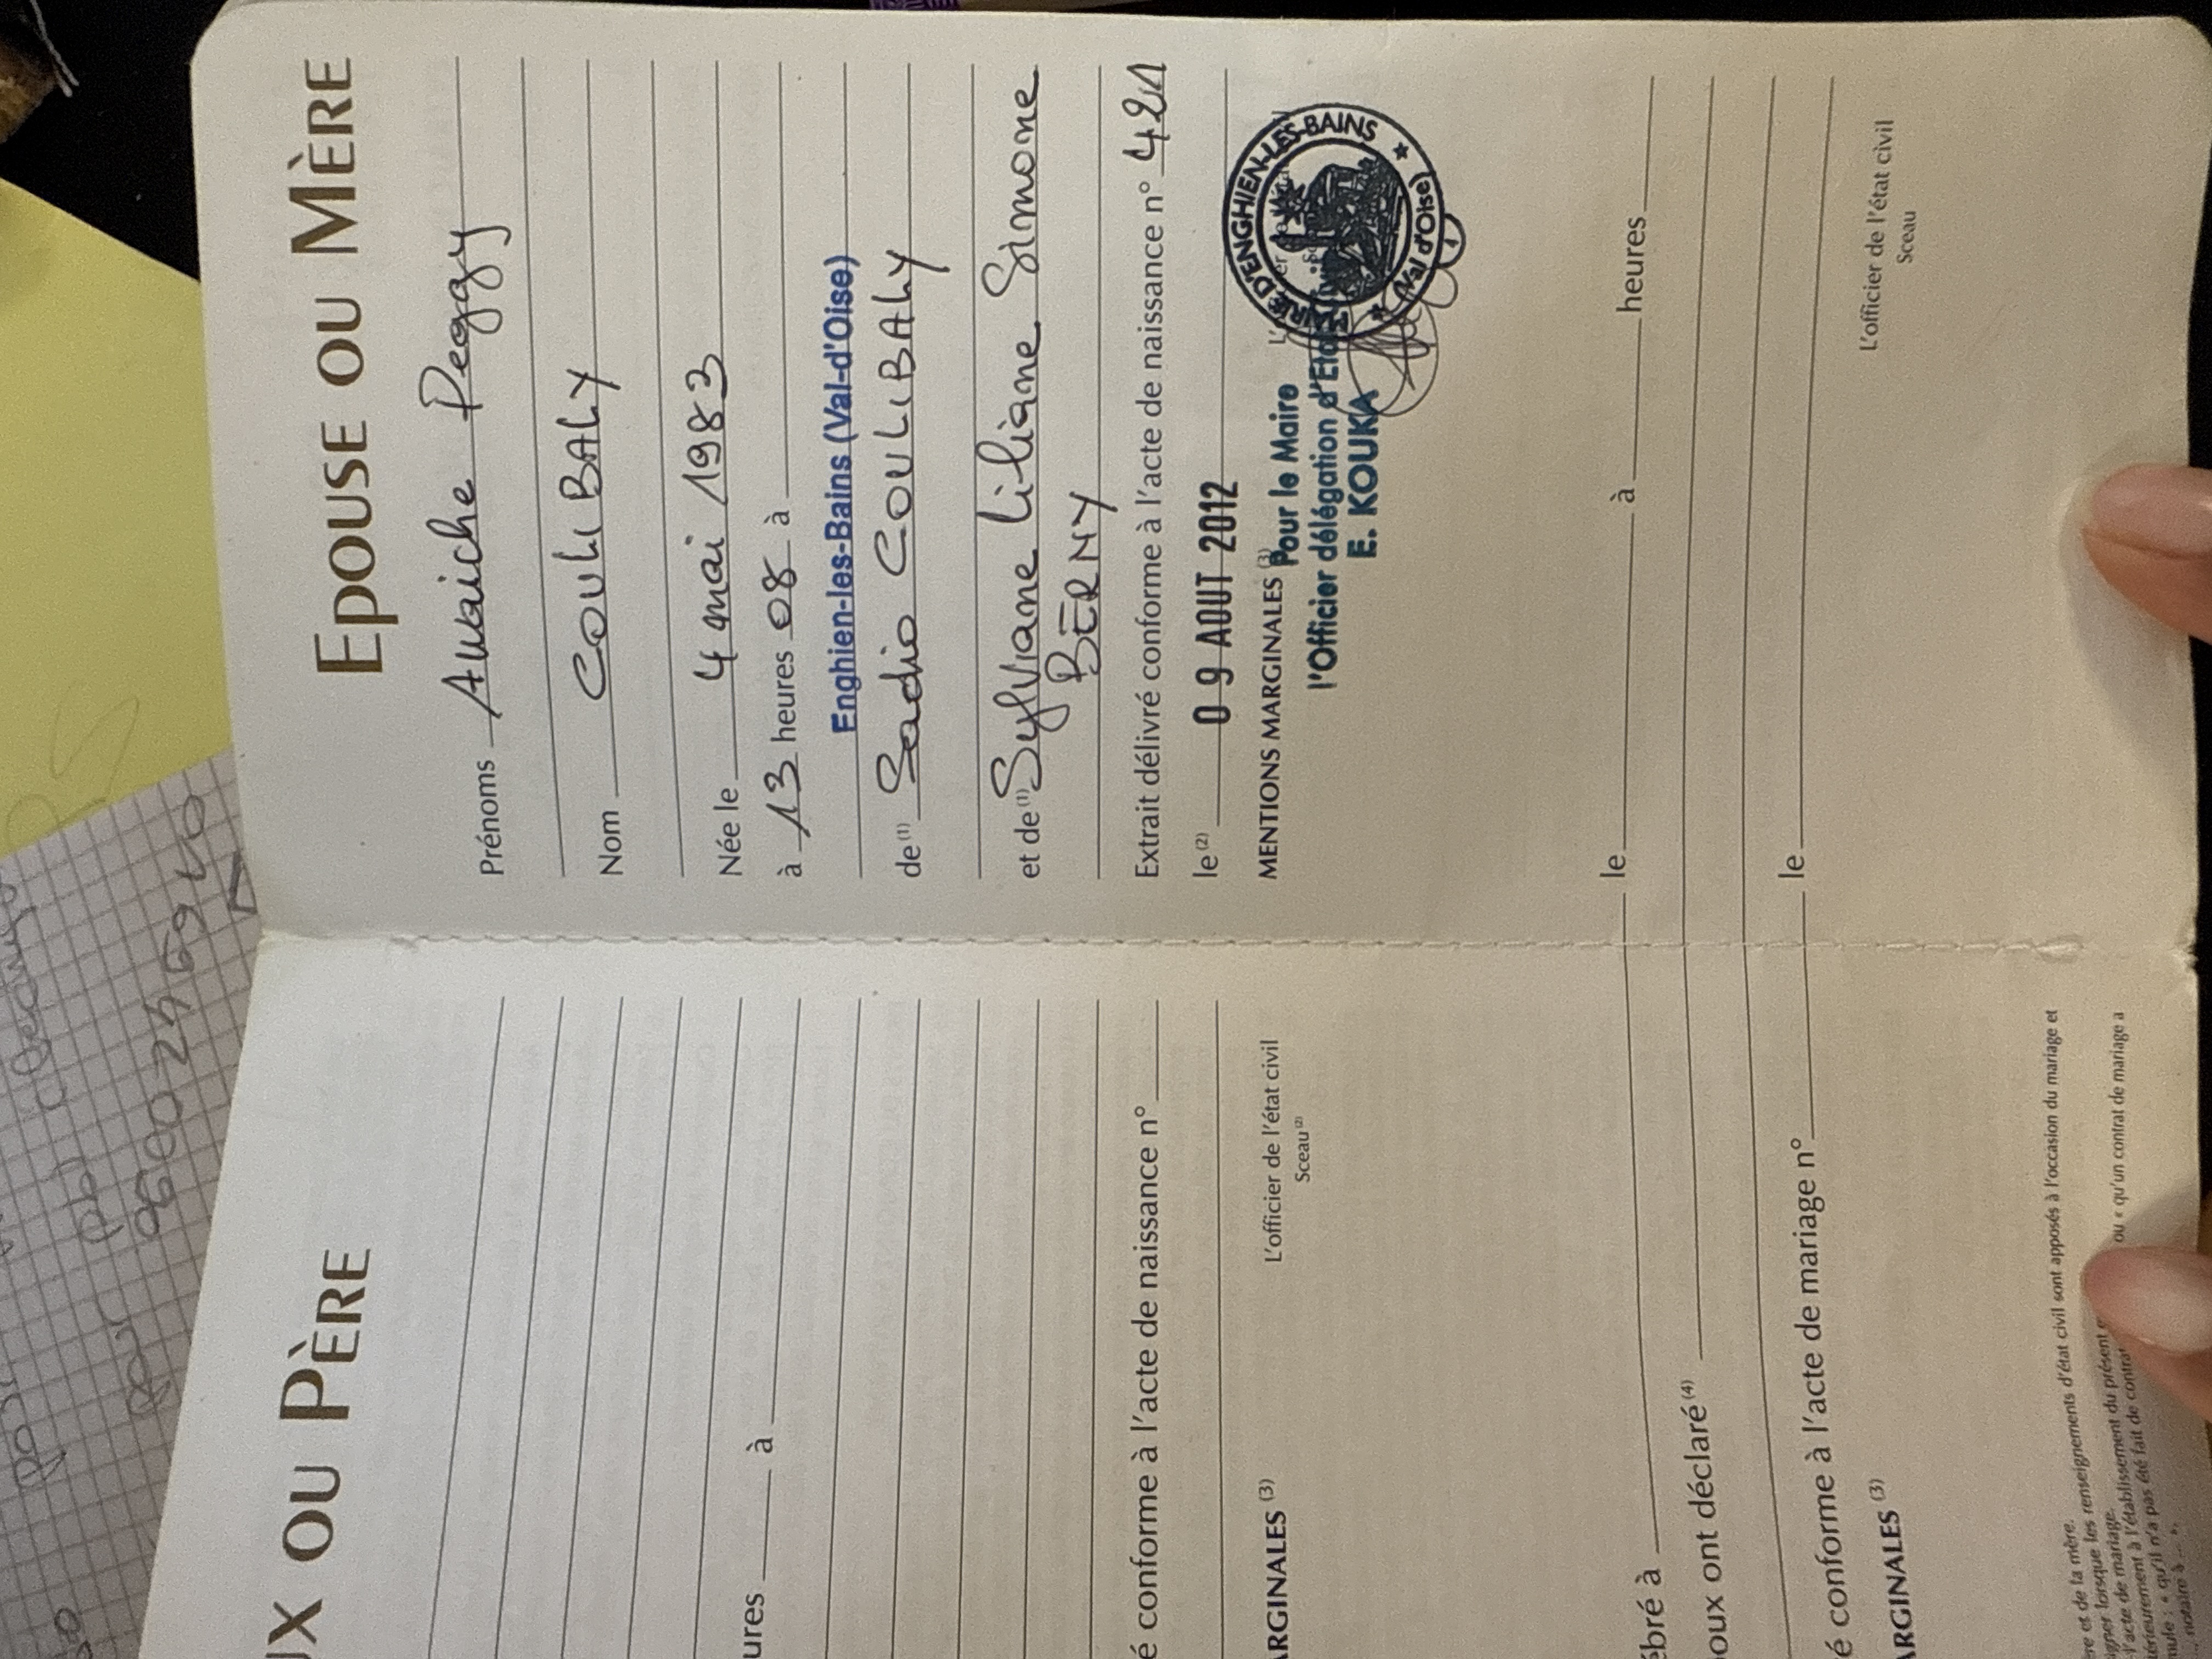 EPOUSE OU MÈRE
Prénoms Awaiche Peggy
Nom COULIBALY
Née le 4 mai 1983
à 13 heures 08 à
Enghien-les-Bains (Val-d'Oise)
de (1) Sadio COULIBALY
et de (1) Sylviane Liliane Simone
BERNY
Extrait délivré conforme à l'acte de naissance n° 421
le (2) 09 AOUT 2012
MENTIONS MARGINALES (3)
Pour le Maire
l'Officier délégation d'Etat
E. KOUKA
MAIRIE D'ENGHIEN-LES-BAINS
(Val d'Oise)
le à heures
le
L'officier de l'état civil
Sceau
UX OU PÈRE
ures à
é conforme à l'acte de naissance n°
L'officier de l'état civil
Sceau (2)
ARGINALES (3)
ébré à
oux ont déclaré (4)
é conforme à l'acte de mariage n°
ARGINALES (3)
re et de la mère.
igner lorsque les renseignements d'état civil sont apposés à l'occasion du mariage et
l'acte de mariage.
térieurement à l'établissement du présent
ou « qu'un contrat de mariage a
mule : « qu'il n'a pas été fait de contrat
notaire à ... ».